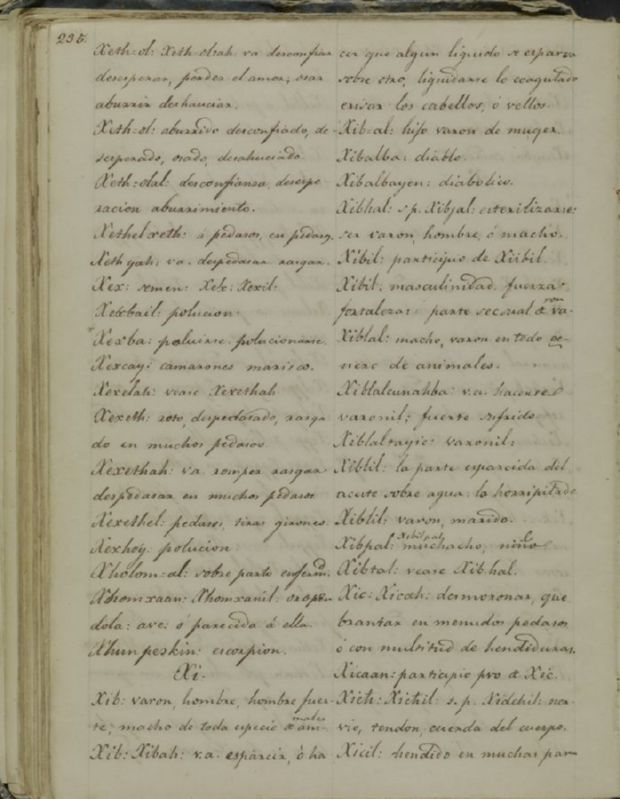 235.
Xeth-ol: Xeth-olah va desconfiar
desesperar, perder el amor, osar
aburrir deshauciar.
Xeth-ol: aburrido desconfiado, de-
sesperado, osado, desahuciado
Xeth-olal: desconfianza, desespe-
racion aburrimiento.
Xethelxeth: á pedasos, en pedasos
Xethyah: va. despedasar rasgar.
Xex: semen: Xex: Xexil:
Xexbail: polucion
Xexba: poluirse polucionarse.
Xexcay: camarones marisco.
Xexelah: vease Xexethah
Xexeth: roto despedasado, rasga-
do en muchos pedasos
Xexethah: va. romper rasgar
despedasar en muchos pedasos
Xexethel: pedasos, tiras girones.
Xexhoy: polucion
Xholom-al: sobre parto enferm.
Xhomxaan: Xhomxanil: oropen-
dola: ave: ó parecida á ella.
Xhunpeskin: escorpion.
Xi.
Xib: varon, hombre, hombre fuer-
te; macho de toda especie de ani-
males
Xib: Xibah: v.a. esparcir, ó ha
cer que algun liquido se esparza
sobre otro, liquidarse lo coagulado
erisar los cabellos, ó vellos.
Xib-al: hijo varon de muger.
Xibalba: diablo.
Xibalbayen: diabolico.
Xibhal: s.p. Xibjal: esterilizarse:
ser varon, hombre, ó macho.
Xibil: participio de Xiibil.
Xibil: masculinidad. fuerza
fortaleza: parte secsual de va-
ron
Xiblal: macho, varon en todo ge-
nero de animales.
Xiblalcunahba: v.a. hacerse
varonil; fuerte sufrido
Xiblaltzyic: varonil:
Xiblil: la parte esparcida del
aceite sobre agua: lo horripilado
Xiblil: varon, marido.
Xibpal: muchacho, niño
Xibtal: vease Xibhal.
Xic: Xicah: desmoronar, que
brantar en menudos pedasos
ó con multitud de hendiduras.
Xicaan: participio pro de Xic.
Xich: Xichil: s.p. Xidchil: ner-
vio, tendon, cuerda del cuerpo.
Xicil: hendido en muchas par